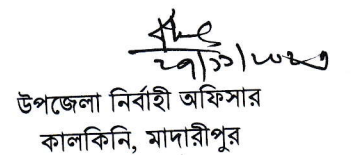 উপজেলা নির্বাহী অফিসার
কালকিনি, মাদারীপুর